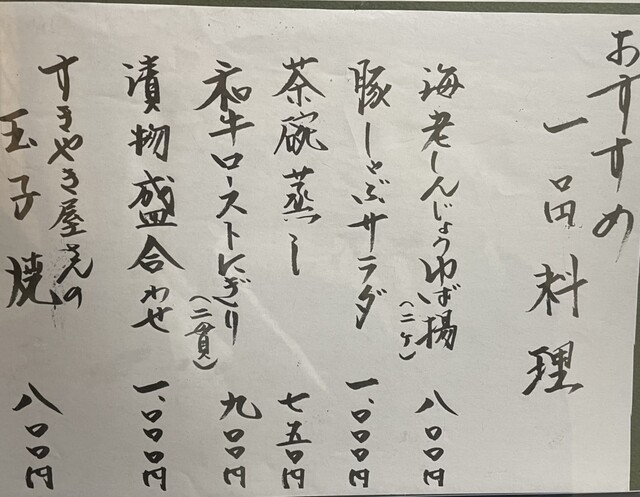 おすすめ
一品料理
海老しんじょうゆば揚(二ヶ) 八〇〇円
豚しゃぶサラダ 一、〇〇〇円
茶碗蒸し 七五〇円
和牛ローストにぎり(二貫) 九〇〇円
漬物盛合わせ 一、〇〇〇円
すきやき屋さんの
玉子焼 八〇〇円